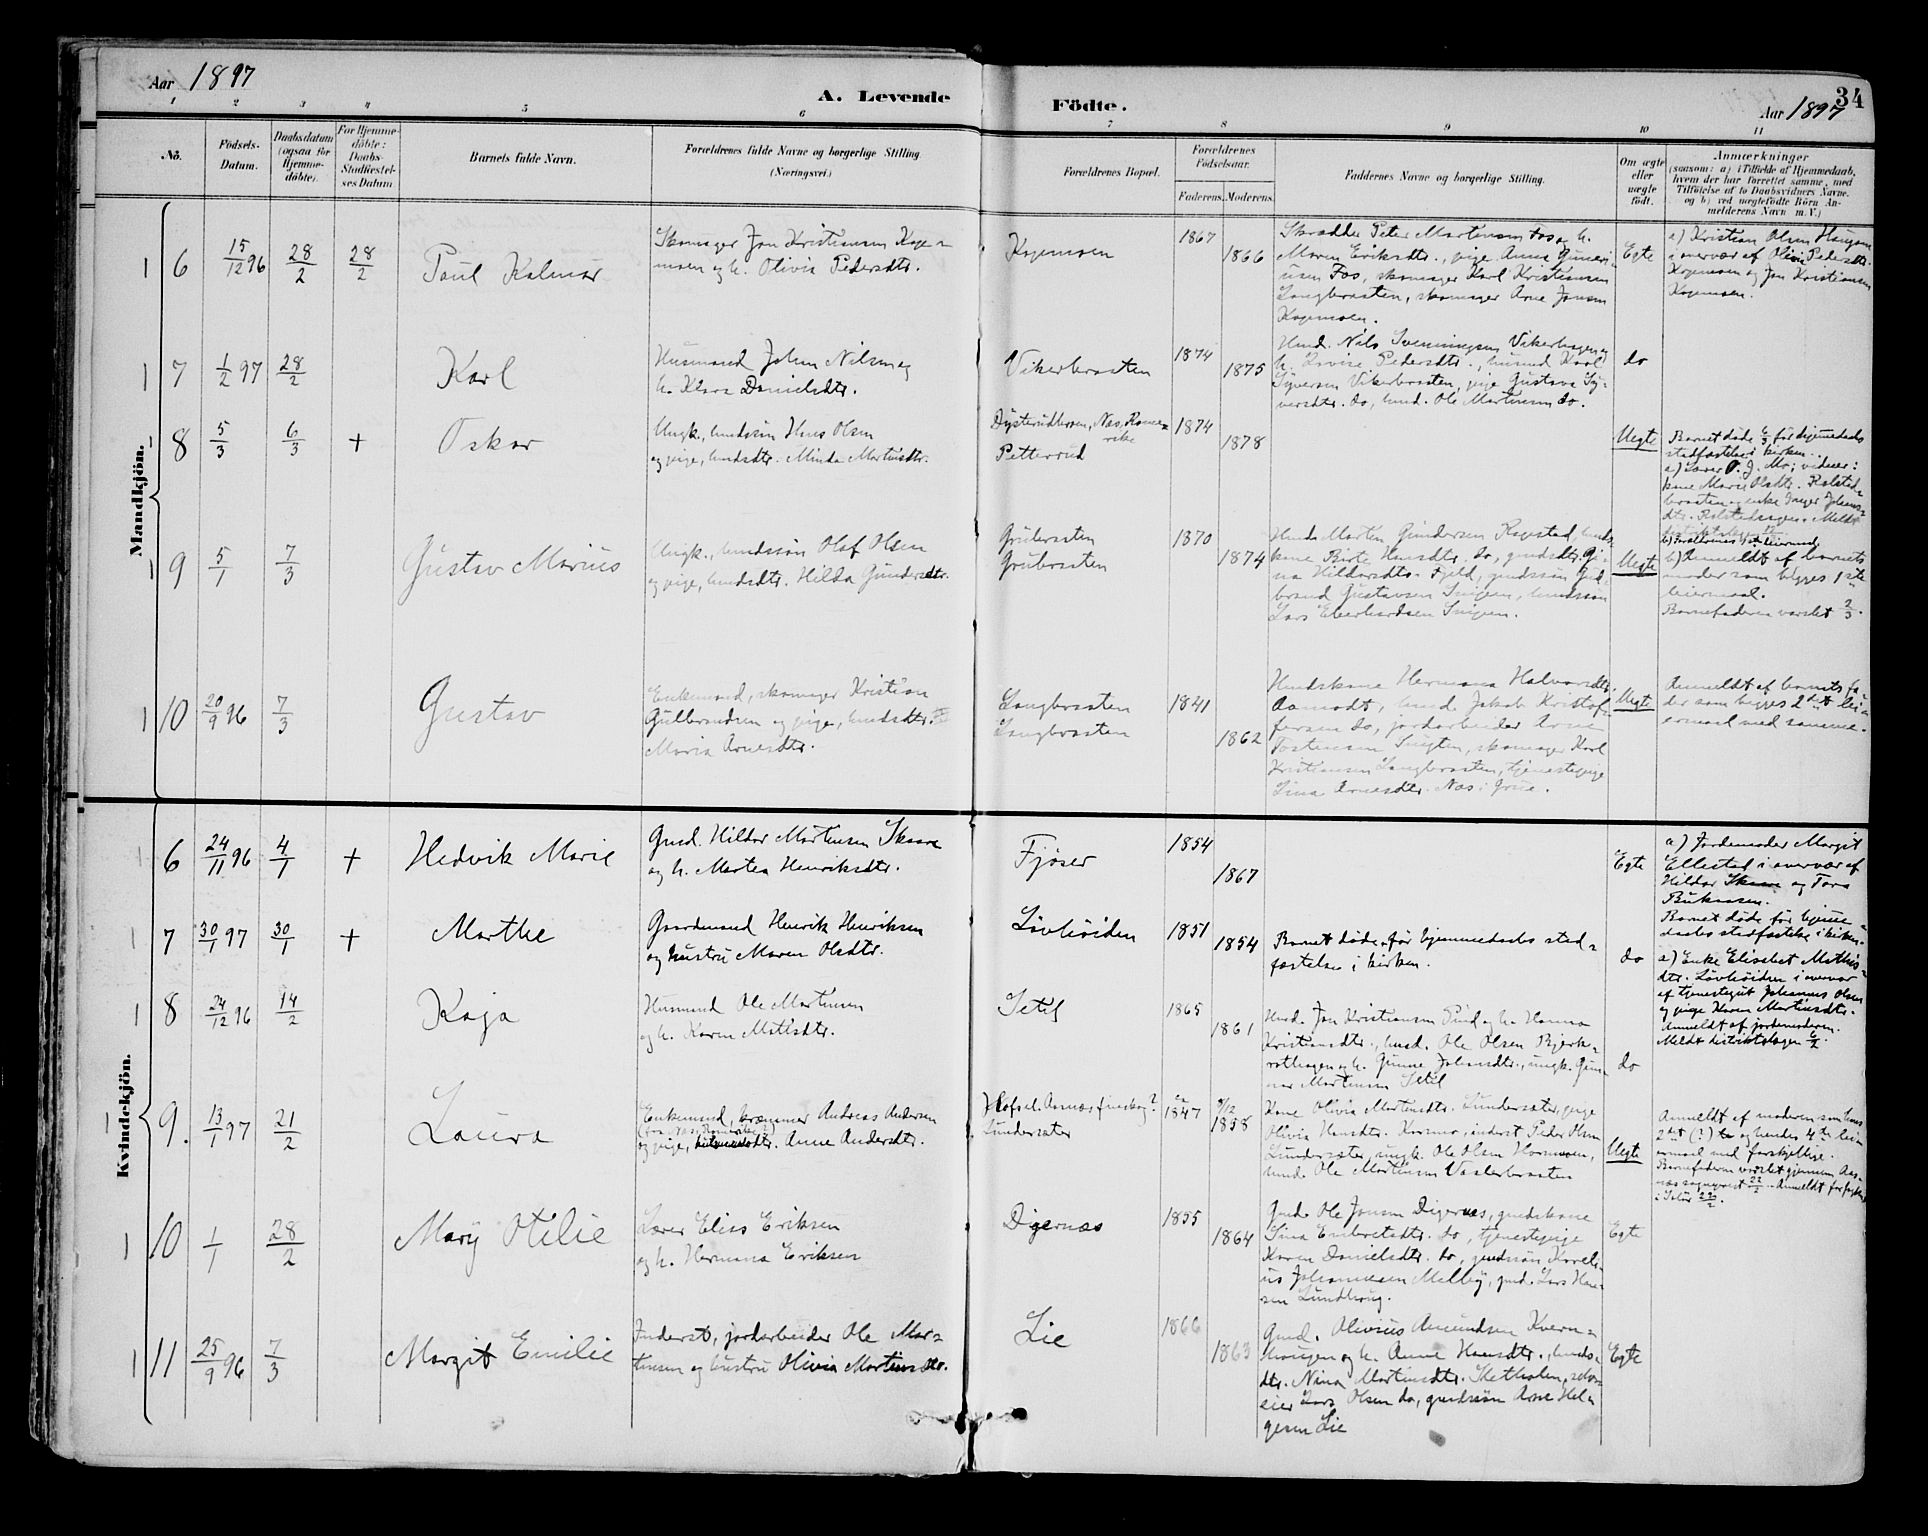 Aar 1897
A. Levende Födte.
Aar 1897
34
1 2 3 4 5 6 7 8 9 10 11
Nö.
Födsels-Datum.
Daabsdatum (ogsaa for Hjemme-döbte).
For Hjemme-döbte: Daabs-Stadfæstel-ses Datum
Barnets fulde Navn.
Forældrenes fulde Navne og borgerlige Stilling.
(Næringsvei.)
Forældrenes Bopæl.
Forældrenes Födselsaar.
Faderens. Moderens.
Faddernes Navne og borgerlige Stilling.
Om ægte eller uægte födt.
Anmærkninger
(saasom: a) i Tilfælde af Hjemmedaab,
hvem der har forrettet samme, med
Tilföielse af to Daabsvidners Navne.
og b) ved uægtefödte Börn An-
melderens Navn m. V.)
Mandkjön.
1 6 15/12 96 28/2 28/2 Paul Kalmar
Skomager Jon Kristiansen Koje=
moen og h. Olivia Pedersdtr.
Kojemoen
1867
1866
Skrædder Peter Martinsen Fos og h.
Maren Eriksdtr., pige Anna Guneri-
usen Fos, skomager Karl Kristiansen
Langbraaten, skomager Arne Jonsen
Kojemoen.
Egte
a) Kristian Olsen Haugen
i overvær af Olivia Pedersdtr.
Kojemoen og Jon Kristiansen
Kojemoen.
1 7 1/2 97 28/2 Karl
Husmand Johan Nilsen og
h. Klara Danielsdtr.
Vikerbraaten
1874
1875
Husmd. Nils Svenningsen Vikerhagen og
h. Lovise Pedersdtr., husmd Karl
Syversen Vikerbraaten, pige Gustava Sy-
versdtr. do, husmd. Ole Martinsen do.
do
8 5/3 6/3 + Oskar
Ungk., husmdssön Hans Olsen
og pige, husmdsdtr. Minda Martinsdtr.
Dysterudhoven, Næs, Rome=
rike
Petterud
1874
1878
Uegte
Barnet døde 6/3 før hjemmedaabs
stadfæstelse i kirken.
a) Lærer O. J. Mo; vidner:
kone Marie Olsdtr. Kolstad=
braaten og enke Inger Johans=
dtr. Kolstadhagen. Meldt
1 9 5/1 7/3 Gustav Marius
Ungk., husmdssön Olof Olsen
og pige, husmdsdtr. Hilda Gundersdtr.
Grubraaten
Grubraaten
1870
1874
Husmd. Morten Gundersen Kopstad, husmds
kone Birte Hansdtr. do, gmdsdtr. Gi-
na Hildarsdtr. Fjeld, gmdssön Gul-
brand Gustavsen Snipen, husmdssön
Lars Eberhardsen Snipen.
Uegte
b) Anmeldt af barnets
moder som begges 1ste
leiermaal.
Barnefaderen varslet 2/3.
1 10 20/9 96 7/3 Gustav
Enkemand, skomager Kristian
Gulbrandsen og pige, husmdsdtr.
Maria Arnesdtr.
Langbraaten
Langbraaten
1841
1862
Husmdskone Hermana Halvorsdtr.
Aamodt, husmd. Jakob Kristof-
fersen do, jordarbeider Arne
Tostensen Snugten, skomager Karl
Kristiansen Langbraaten, tjenestepige
Lina Arnesdtr. Næs i Grue.
Uegte
Anmeldt af barnets fa-
der som begges 2det lei=
ermaal med samme.
Kvindekjön.
6 24/11 96 4/1 + Hedvik Marie
Gmd. Hildor Martinsen Skaare
og h. Martea Henriksdtr.
Fjøser
1854
1867
Egte
a) Jordemoder Margit
Ellestad i overvær af
Hildor Skaare og Tora
Barnet døde før hjemme=
daabs stadfæstelse i kirken.
7 30/1 97 30/1 + Marthe
Gaardmand Henrik Henriksen
og hustru Maren Olsdtr.
Lövhöiden
1851
1854
Barnet døde før hjemmedaabs stad=
fæstelse i kirken.
do
a) Enke Elisabet Mathis-
dtr. Lövhöiden i overvær
af tjenestegut Johannes Olsen
og pige Karen Martinsdtr.
Anmeldt af jordemoderen.
Meldt distriktslægen 6/2.
1 8 24/12 96 14/2 Kaja
Husmand Ole Martinsen
og h. Karen Matisdtr.
Setil
1865
1861
Husmd. Jon Kristiansen Pind og h. Hanna
Kristiansdtr., husmd. Ole Olsen Bjørk=
rothagen og h. Gunne Johansdtr., ungk. Gun-
nar Martinsen Setil
do
1 9. 13/1 97 21/2 Laura
Enkemand, kræmmer Andreas Andersen
(fra Næs, Romerike?)
og pige, Anne Andersdtr.
Hof s.l. Aasnæs finskog?
Lundersæter
ca 1847
9/12 1858
Kone Olivia Martinsdtr. Lundersæter, pige
Olivia Hansdtr. Kornmo, inderst Peder Olsen
Lundersæter, ungk. Ole Olsen Hornmoen,
husmd. Ole Mortensen Vaalerbraaten
Uegte
Anmeldt af moderen som hans
2det (?) og hendes 4de lei=
ermaal med forskjellige.
Barnefaderen varslet gjennem Aas-
næs sogneprest 22/2. Anmeldt for fogden
i Solør 22/2.
1 10 1/1 28/2 Mary Otilie
Lærer Elias Eriksen
og h. Hermana Eriksen
Digernæs
1855
1864
Gmd. Ole Jonsen Digernæs, gmdskone
Lina Embretsdtr. do, tjenestepige
Karen Danielsdtr. do, gmdssön Kareli-
us Johannesen Melby, gmd. Lars Han-
sen Lundhaug.
Egte
1 11 25/9 96 7/3 Margit Emilie
Inderst, jordarbeider Ole Mar=
tinsen og hustru Olivia Martinsdtr.
Lie
1866
1863
Gmd. Olivius Amundsen Kvern=
haugen og h. Anne Hansdtr., husmds-
dtr. Nina Martinsdtr. Sletholen, selv-
eier Lars Olsen do, gmdssön Arne Hel=
gesen Lie
Egte